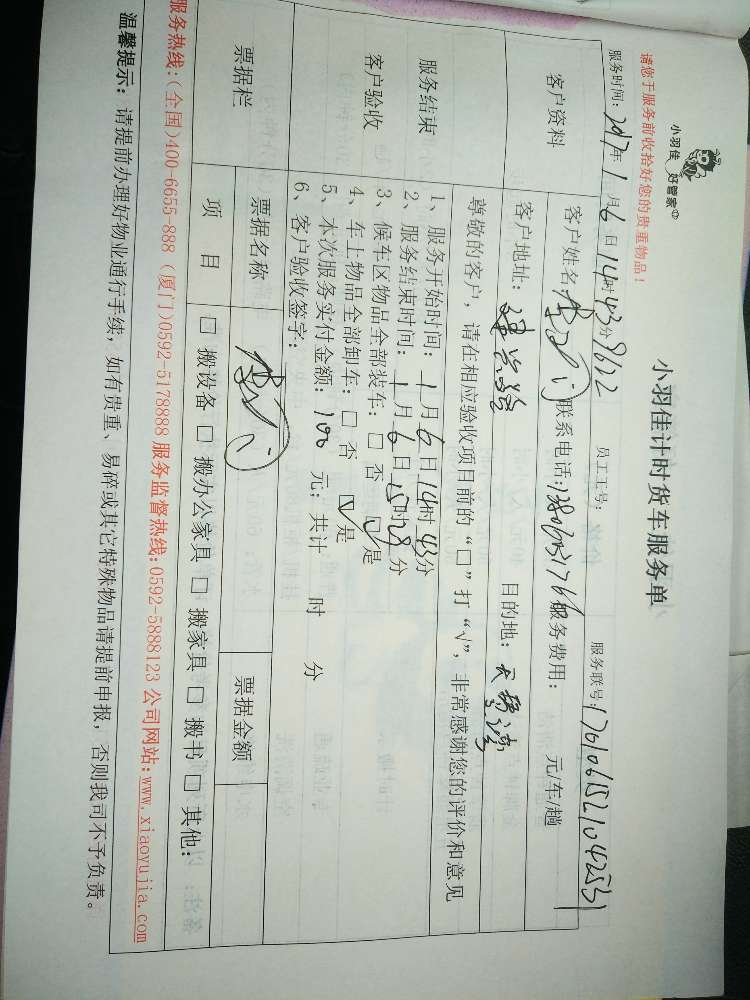 小羽佳 好管家
请您于服务前收拾好您的贵重物品!
小羽佳计时货车服务单
服务时间: 2017年 1 月 6 日 14时43分 员工工号: 服务联号:
客户资料
客户姓名: 联系电话: 服务费用: 元/车/趟
客户地址: 目的地: 天琴湾
尊敬的客户,请在相应验收项目前的“□”打“√”,非常感谢您的评价和意见
服务结束
客户验收
1、服务开始时间: 1月 6日 14时 43分
2、服务结束时间: 1月 6日 15时 28分
3、候车区物品全部装车: □ 否 ☑ 是
4、车上物品全部卸车: □ 否 ☑ 是
5、本次服务实付金额: 100 元; 共计 时 分
6、客户验收签字:
票据栏
票据名称 票据金额
项 目 □ 搬设备 □ 搬办公家具 □ 搬家具 □ 搬书 □ 其他:
服务热线:(全国)400-6655-888 (厦门)0592-5178888 服务监督热线:0592-5888123 公司网站:www.xiaoyujia.com
温馨提示: 请提前办理好物业通行手续,如有贵重、易碎或其它特殊物品请提前申报,否则我司不予负责。